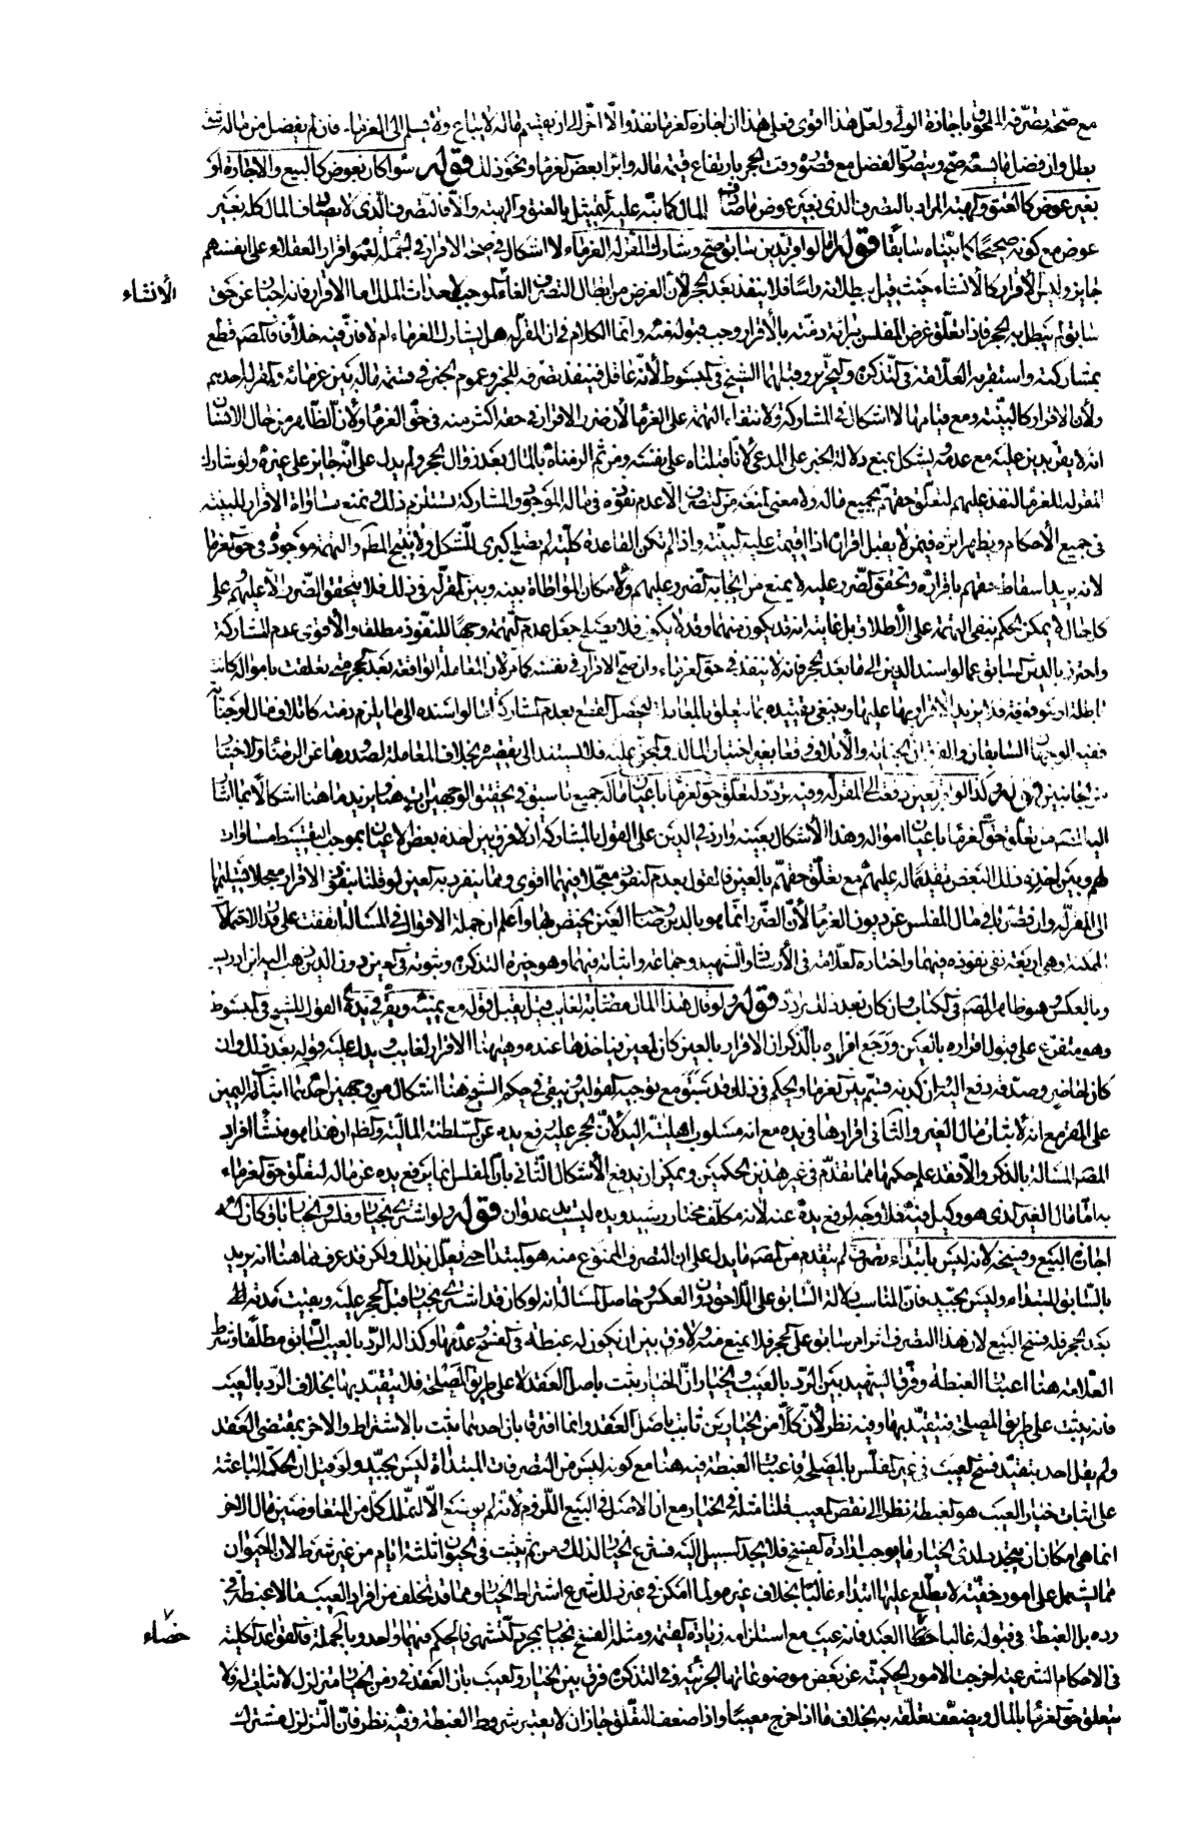 مع صحة تصرفه اللاحق باجازة الولي ولعل هذا اقوى فعلى هذا ان اجازه الغرماء نفذ والا اخر الى ان يقسم ماله لا يباع ولا يسلم الى الغرماء فان لم يفضل من ماله شئ
بطل وان فضل ما يسعه صح ويتصور الفضل مع قصوره وقت الحجر بارتفاع قيمة ماله وابراء بعض الغرماء ونحو ذلك قوله سواء كان بعوض كالبيع والاجارة او
بغير عوض كالعتق والهبة المراد بالتصرف الذي بغير عوض ما صادف المال كما نبه عليه بالتمثيل بالعتق والهبة والا فالتصرف الذي لا يصادف المال كله بغير
عوض مع كونه صحيحا كما بيناه سابقا قوله اما لو اقر بدين سابق صح وشارك المقر له الغرماء لا اشكال في صحة الاقرار في الجملة لعموم اقرار العقلاء على انفسهم
جايز وليس الاقرار كالانشاء حيث قيل ببطلانه راسا فلا ينفذ بعد الحجر لان الغرض من ابطال التصرف الغاء الموجب لاحداث الملك اما الاقرار فانه اخبار عن حق
الانشاء
سابق لم يبطل بالحجر فاذا تعلق غرض المفلس ببراءة ذمته بالاقرار وجب قبوله منه وانما الكلام في ان المقر له هل يشارك الغرماء ام لا فان فيه خلافا فالمصنف قطع
بمشاركته واستقر به العلامة في التذكرة والتحرير وقبلهما الشيخ في المبسوط لانه عاقل فينفذ تصرفه للخبر وعموم الخبر في قسمة ماله بين غرمائه والمقر له احدهم
ولان الاقرار كالبينة ومع قيامها لا اشكال في المشاركة ولانتفاء التهمة على الغرماء لان ضرر الاقرار في حقه اكثر منه في حق الغرماء ولان الظاهر من حال الانسان
انه لا يقر بدين عليه مع عدمه ويشكل بمنع دلالة الخبر على المدعى لانا قبلناه على نفسه ومن ثم الزمناه بالمال بعد زوال الحجر ولم يدل على انه جايز على غيره ولو شارك
المقر له الغرماء لنفذ عليهم لتعلق حقهم بجميع ماله ولا معنى لمنعه من التصرف الا عدم نفوذه في ماله الموجود والمشاركة تستلزم ذلك ويمنع مساواة الاقرار للبينة
في جميع الاحكام ويظهر اثره فيمن لا يقبل اقراره اذا اقيمت عليه البينة واذا لم تكن القاعدة كلية لم يصلح كبرى للشكل ولا ينتج المطلوب والتهمة موجودة في حق الغرماء
لانه يريد اسقاط حقهم باقراره وتحقق الضرر عليه لا يمنع من ايجابه الضرر عليهم ولامكان المواطاة بينه وبين المقر له في ذلك فلا يتحقق الضرر الا عليهم على
كل حال لا يمكن الحكم بنفي التهمة على الاطلاق بل غايته انه قد يكون متهما وقد لا يكون فلا يصلح جعل عدم التهمة وجها للنفوذ مطلقا والاقوى عدم المشاركة
واحترز بالدين السابق عما لو اسند الدين الى ما بعد الحجر فانه لا ينفذ في حق الغرماء وان صح الاقرار في نفسه كما مر لان المعاملة الواقعة بعد الحجر متى تعلقت بامواله كانت
باطلة او موقوفة فلا يزيد الاقرار بها عليها وينبغي تقييده بما يتعلق بالمعاملة ليحصل القطع بعدم المشاركة اما لو اسنده الى ما يلزم ذمته كاتلاف مال او جناية
ففيه الوجهان السابقان والفرق ان الجناية والاتلاف وقعا بغير اختيار المالك والمجني عليه فلا يستند الى تقصيره بخلاف المعاملة لصدورها عن الرضا والاختيار
من الجانبين قوله وكذا لو اقر بعين دفعت الى المقر له وفيه تردد لتعلق حق الغرماء باعيان ماله جميع ما سبق في تحقيق الوجهين ات هنا ويزيد ها هنا اشكالا
من تعلق حق الغرماء باعيان امواله وهذا الاشكال بعينه وارد في الدين على القول بالمشاركة اذ لا فرق بين اخذه بعض الاعيان بموجب التقسيط مساويا
لهم وبين اخذه ذلك البعض تقديما له عليهم مع تعلق حقهم بالعين فالقول بعدم النفوذ معجلا فيهما اقوى ومما ينفرد به العين لو قلنا بنفوذ الاقرار معجلا تسليمها
الى المقر له وان قصر باقي مال المفلس عن ديون الغرماء لان الضرر انما هو بالدين وصاحب العين يختص بها واعلم ان جملة الاقوال في المسالة اتفقت على قدر الاحتمالات
الممكنة وهي اربعة نفي نفوذه فيهما واختاره العلامة في الارشاد والشهيد وجماعة واثباته فيهما وهو خيرة التذكرة وثبوته في العين دون الدين ذهب اليه ابن ادريس
وبالعكس وهو ظاهر المصنف في الكتاب وان كان بعد ذلك تردد قوله ولو قال هذا المال مضاربة لغايب قيل يقبل قوله مع يمينه ويقر في يده القول للشيخ في المبسوط
وهو متفرع على قبول اقراره بالعين ووجه افراده بالذكر ان الاقرار بالعين كان لمعين فياخذها عنده وهيهنا الاقرار لغايب ويدل عليه قوله بعد ذلك وان
كان لحاضر وصدقه دفع اليه وان كذبه قسم بين الغرماء والحكم في ذلك قد سبق مع توجيه القولين ويبقى في حكم الشيخ هنا اشكال من وجهين احدهما اثباته اليمين
على المقر مع انه لاثبات مال الغير والثاني اقرارها في يده مع انه مسلوب اهلية اليد لان الحجر عليه رفع يده عن السلطنة المالية والظاهر ان هذا هو منشأ افراد
المصنف المسالة بالذكر والا فقد علم حكمها مما تقدم في غير هذين الحكمين ويمكن ان يدفع الاشكال الثاني بان المفلس انما يرفع يده عن ماله لتعلق حق الغرماء
به اما مال الغير الذي هو وكيل فيه فلا وجه لرفع يده عنه لانه مكلف مختار رشيد ويده ليست يد عدوان قوله ولو اشترى بخيار وفلس والخيار باق كان له
اجازة البيع وفسخه لانه ليس بابتداء تصرف لم يتقدم من المصنف ما يدل على ان التصرف الممنوع منه هو المبتدا حتى يعلل بذلك ولكن قد عرف مما هنا انه يريد
بالسابق المبتداء وليس بجيد فان المناسب دلالة السابق على اللاحق دون العكس وحاصل المسالة انه لو كان قد اشترى بخيار قبل الحجر عليه وبقيت مدته الى
بعد الحجر فله فسخ البيع لان هذا التصرف اثر امر سابق على الحجر فلا يمنع منه ولا فرق بين ان يكون له غبطة في الفسخ وعدمها وكذا له الرد بالعيب السابق مطلقا وشرط
العلامة هنا اعتبار الغبطة وفرق الشهيد بين الرد بالعيب والخيار ان الخيار يثبت باصل العقد لا على طريق المصلحة فلا يتقيد بها بخلاف الرد بالعيب
فانه يثبت على طريق المصلحة فيتقيد بها وفيه نظر لان كلا من الخيارين ثابت باصل العقد وانما افترقا بان احدهما يثبت بالاشتراط والاخر بمقتضى العقد
ولم يقل احد بتقييد فسخ العيب في غير المفلس بالمصلحة فاعتبار الغبطة فيه هنا مع كونه ليس من التصرفات المبتداة ليس بجيد ولو قيل ان الحكمة الباعثة
على اثبات خيار العيب هو الغبطة نظرا الى نقص المعيب قلنا مثله في الخيار مع ان الاصل في البيع اللزوم لانه لم يوضع الا لتملك كل من المتعاوضين مال الاخر
انما هي امكان ان يتجدد لذي الخيار ما يوجب ارادة الفسخ فلا يجد السبيل اليه فشرع الخيار لذلك ومن ثم ثبت في الحيوان ثلثة ايام من غير شرط لان الحيوان
مما يشتمل على امور خفية لا يطلع عليها ابتداء غالبا بخلاف غيره ولما امكن في غير ذلك شرع اشتراط الخيار ومما قد تخلف من افراد العيب ما لا غبطة في
رده بل الغبطة في قبوله غالبا خصاء العبد فانه عيب مع استلزامه زيادة القيمة ومثله الفسخ بالخيار بمجرد التشهي فالحكم فيهما واحد وبالجملة فالقواعد الكلية
خصاء
في الاحكام الشرعية اخرجت الامور الحكمية عن بعض موضوعاتها الجزئية وفي التذكرة فرق بين الخيار والعيب بان العقد في زمن الخيار متزلزل لا ثبات له فلا
يتعلق حق الغرماء بالمال ويضعف تعلقه به بخلاف ما اذا خرج معيبا واذا ضعف التعلق جاز ان لا يعتبر شرط الغبطة وفيه نظر فان التزلزل مشترك